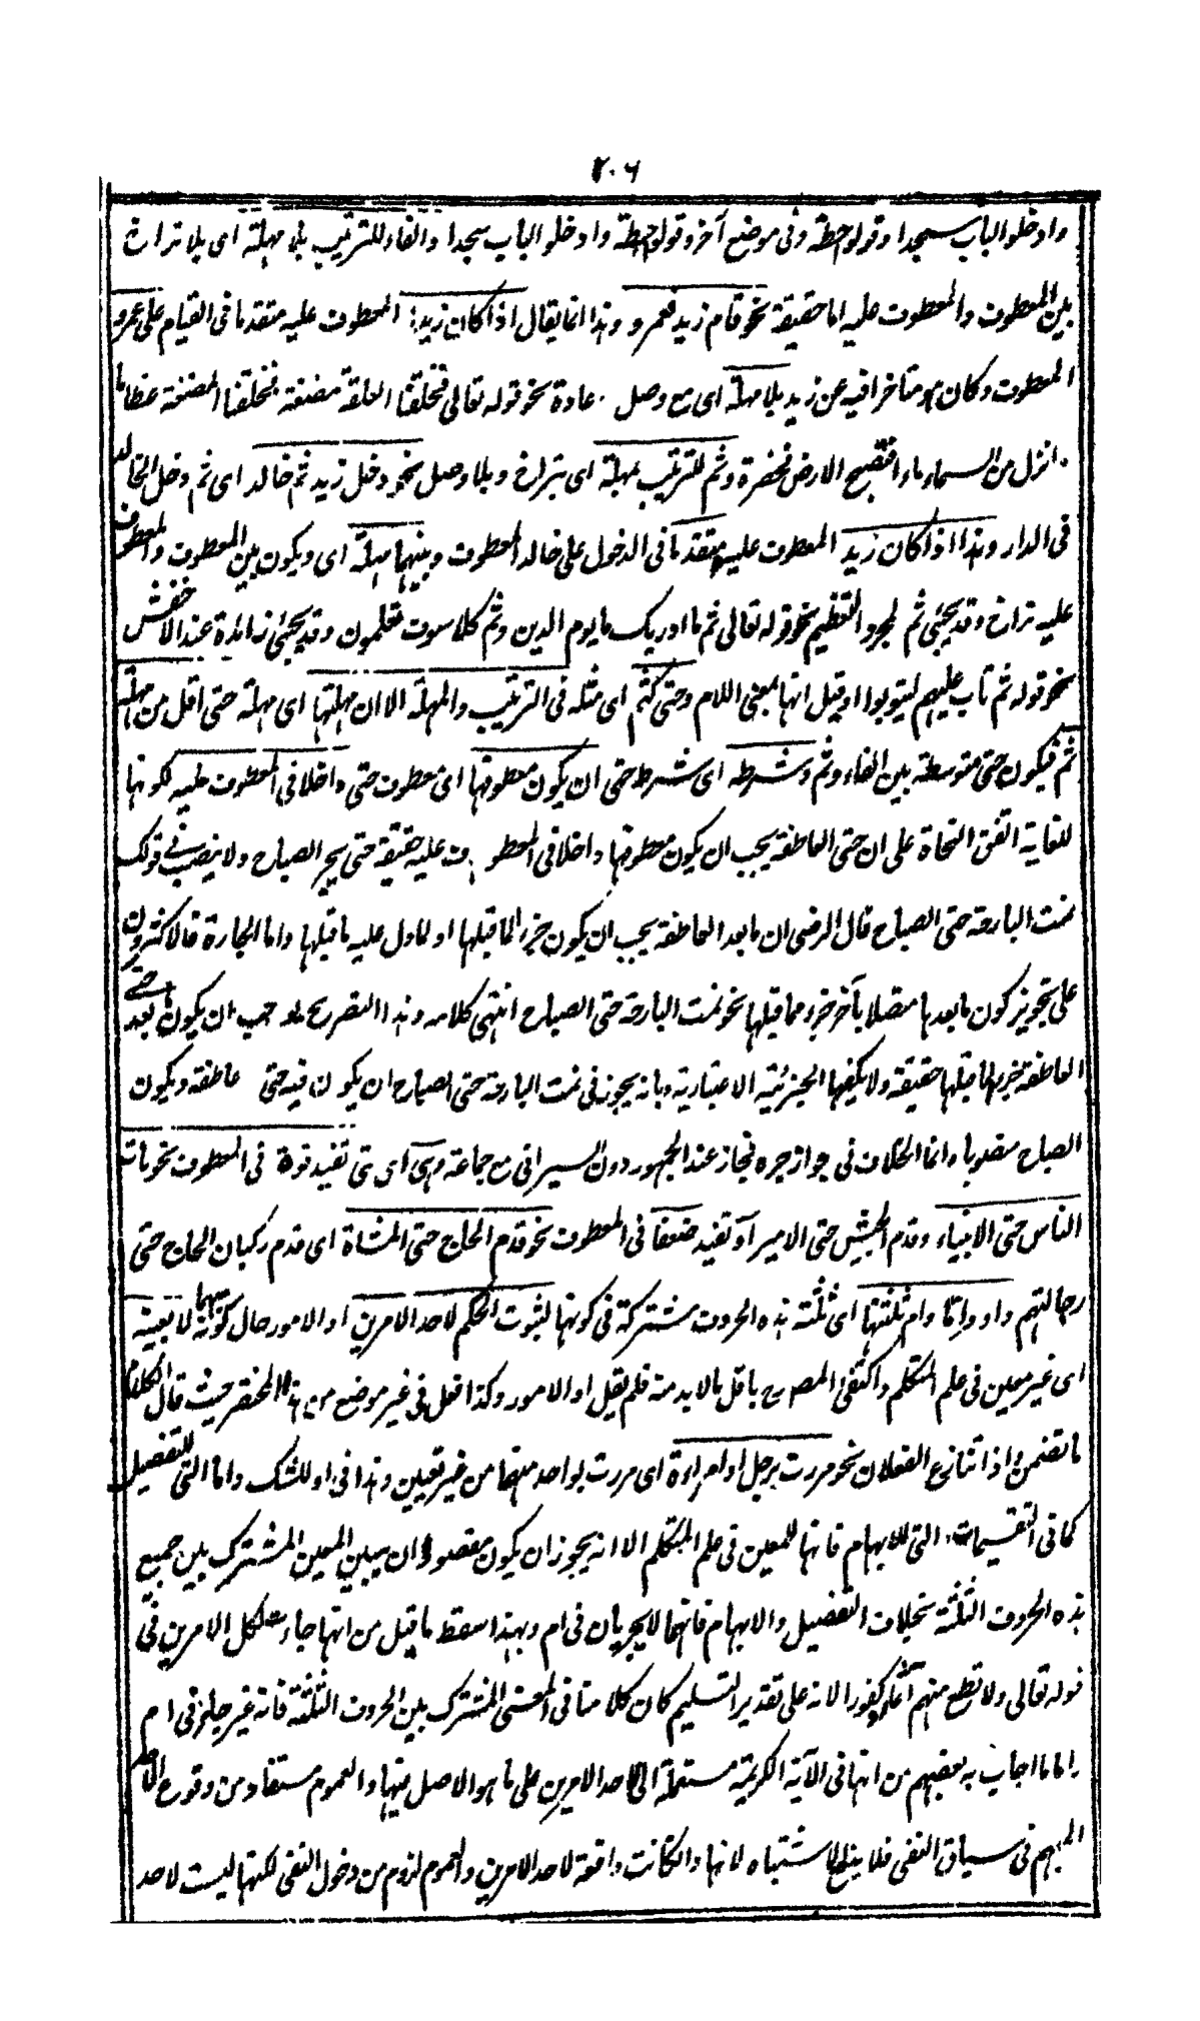 ٢٠٦
وادخلوا الباب سجدا وقولوا حطة وفي موضع آخر وقولوا حطة وادخلوا الباب سجدا والفاء للترتيب بلا مهلة اى بلا تراخ
بين المعطوف والمعطوف عليه اما حقيقة نحو قام زيد فعمرو وهذا انما يقال اذا كان زيد المعطوف عليه متقدما فى القيام على عمرو
المعطوف وكان هو متاخرا فيه عن زيد بلا مهلة اى مع وصل عادة نحو قوله تعالى فخلقنا العلقة مضغة فخلقنا المضغة عظاما
انزل من السماء ماء فتصبح الارض مخضرة وثم للترتيب بمهلة اى بتراخ وبلا وصل نحو دخل زيد ثم خالد اى ثم دخل الخالد
فى الدار وهذا اذا كان زيد المعطوف عليه متقدما فى الدخول على خالد المعطوف وبينهما مهلة اى ويكون بين المعطوف والمعطوف
عليه تراخ وقد يجئ ثم لمجرد التعظيم نحو قوله تعالى ثم ما ادريك ما يوم الدين وثم كلا سوف تعلمون وقد يجئ زائدة عند الاخفش
نحو قوله ثم تاب عليهم ليتوبوا او قيل انها بمعنى اللام وحتى كثم اى مثله فى الترتيب والمهلة الا ان مهلتها اى مهلة حتى اقل من مهلة
ثم فيكون حتى متوسطة بين الفاء وثم وشرطه اى شرط حتى ان يكون معطوفها اى معطوف حتى داخلا فى المعطوف عليه لكونها
للغاية اتفق النحاة على ان حتى العاطفة يجب ان يكون معطوفها داخلا فى المعطوف عليه حقيقة حتى يجر الصباح ولا ينصب فى قولك
نمت البارحة حتى الصباح قال الرضى ان ما بعد العاطفة يجب ان يكون جزء لما قبلها او لما دل عليه ما قبلها واما الجارة فالاكثرون
على تجويز كون ما بعدها متصلا بآخر جزء مما قبلها نحو نمت البارحة حتى الصباح انتهى كلامه وهذا التصريح بوجوب ان يكون ما بعد حتى
العاطفة جزء لما قبلها حقيقة ولا يكفيها الجزئية الاعتبارية وبانه يجوز فى نمت البارحة حتى الصباح ان يكون فيه حتى عاطفة ويكون
الصباح منصوبا وانما الخلاف فى جواز جره فجاز عند الجمهور دون السيرافى مع جماعة وهى اى حتى تفيد قوة فى المعطوف نحو مات
الناس حتى الانبياء وقدم الجيش حتى الامير او تفيد ضعفا فى المعطوف نحو قدم الحاج حتى المشاة اى قدم ركبان الحاج حتى
رجالتهم واو واما وام ثلثتها اى ثلثة هذه الحروف مشتركة فى كونها لثبوت الحكم لاحد الامرين او الامور حال كونه مبهما لا بعينه
اى غير معين فى علم المتكلم واكتفى المصنف باقل ما لابد منه فلم يقل او الامور وكذا فعل فى غير موضع من هذا المختصر حيث قال الكلام
ما تضمن واذا تنازع الفعلان نحو مررت برجل او امراءة اى مررت بواحد منهما من غير تعيين وهذا فى او للشك واما التى للتفصيل
كما فى التقسيمات التى للابهام فانها للمعين فى علم المتكلم الا انه يجوز ان يكون مقصودا ان يبين المعين المشترك بين جميع
هذه الحروف الثلثة بخلاف التفصيل والابهام فانهما لا يجريان فى ام وبهذا سقط ما قيل من انها جاءت لكل الامرين فى
قوله تعالى ولا تطع منهم آثما او كفورا لانه على تقدير التسليم كان كلامنا فى المعنى المشترك بين الحروف الثلثة فانه غير جار فى ام
واما ما اجاب به بعضهم من انها فى الآية الكريمة مستعملة لاحد الامرين على ما هو الاصل فيها والعموم مستفاد من وقوع الاحد
المبهم فى سياق النفى فلا ينفى الاشتباه لانها وان كانت واقعة لاحد الامرين والعموم لزوم من دخول النفى لكنها ليست لاحد